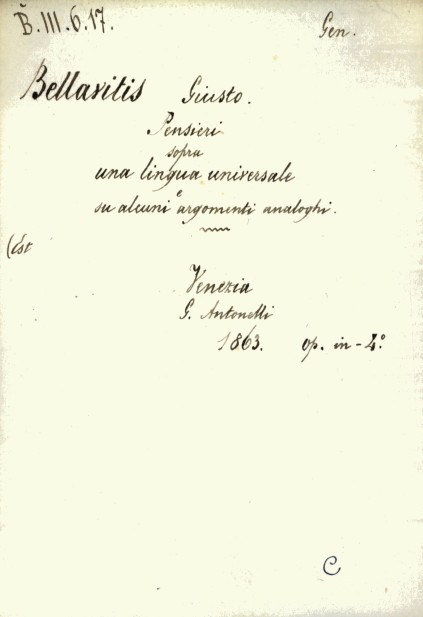 B.III.6.17.
Gen.
Bellavitis Giusto.
Pensieri
sopra
una lingua universale
e
su alcuni argomenti analoghi.
(Est
Venezia
G. Antonelli
1863. op. in-4°
C